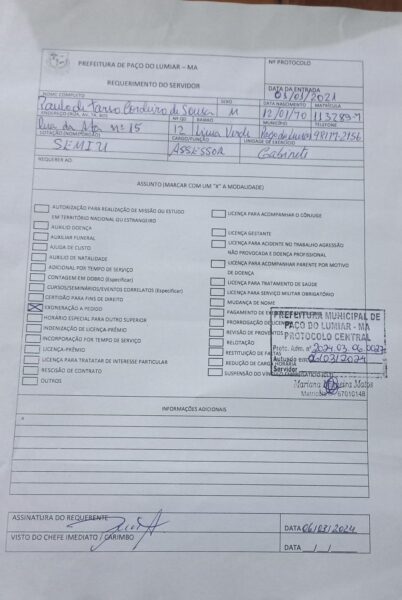 PREFEITURA DE PAÇO DO LUMIAR – MA
Nº PROTOCOLO
REQUERIMENTO DO SERVIDOR
DATA DA ENTRADA
01/01/2021
NOME COMPLETO
SEXO
DATA NASCIMENTO
MATRÍCULA
Paulo de Tarso Cordeiro de Sousa
M
12/01/70
113289-1
ENDEREÇO (RUA, AV, TR, ROD)
Nº (S)
BAIRRO
MUNICÍPIO
TELEFONE
Rua da nº 15
12
Lima Verde
Paço do Lumiar
LOTAÇÃO (NOME/PREFIXO)
CARGO/FUNÇÃO
UNIDADE DE EXERCÍCIO
SEMIU
ASSESSOR
Gabinete
REQUERER AO:
ASSUNTO (MARCAR COM UM "X" A MODALIDADE)
AUTORIZAÇÃO PARA REALIZAÇÃO DE MISSÃO OU ESTUDO
EM TERRITÓRIO NACIONAL OU ESTRANGEIRO
AUXILIO DOENÇA
AUXILIAR FUNERAL
AJUDA DE CUSTO
AUXILIO DE NATALIDADE
ADICIONAL POR TEMPO DE SERVIÇO
CONTAGEM EM DOBRO (Especificar)
CURSOS/SEMINÁRIOS/EVENTOS CORRELATOS (Especificar)
CERTIDÃO PARA FINS DE DIREITO
X EXONERAÇÃO A PEDIDO
HORÁRIO ESPECIAL PARA OUTRO SUPERIOR
INDENIZAÇÃO DE LICENÇA-PRÊMIO
INCORPORAÇÃO POR TEMPO DE SERVIÇO
LICENÇA-PRÊMIO
LICENÇA PARA TRATATAR DE INTERESSE PARTICULAR
RESCISÃO DE CONTRATO
OUTROS
LICENÇA PARA ACOMPANHAR O CÔNJUGE
LICENÇA GESTANTE
LICENÇA PARA ACIDENTE NO TRABALHO AGRESSÃO
NÃO PROVOCADA E DOENÇA PROFISSIONAL
LICENÇA PARA ACOMPANHAR PARENTE POR MOTIVO
DE DOENÇA
LICENÇA PARA TRATAMENTO DE SAÚDE
LICENÇA PARA SERVIÇO MILITAR OBRIGATÓRIO
MUDANÇA DE NOME
PAGAMENTO DE
PRORROGAÇÃO DE
REVISÃO DE PROVENTOS
RELOTAÇÃO
RESTITUIÇÃO DE FALTAS
REDUÇÃO DE CARGA HORÁRIA
SUSPENSÃO DO
PREFEITURA MUNICIPAL DE
PAÇO DO LUMIAR - MA
PROTOCOLO CENTRAL
Proto. Adm. nº 2024.03.06.0027
Autuado em 06/03/2024
Servidor
Mariana Matos
Matrícula 67010148
INFORMAÇÕES ADICIONAIS
ASSINATURA DO REQUERENTE
DATA 06/03/2024
VISTO DO CHEFE IMEDIATO / CARIMBO
DATA __/__/__